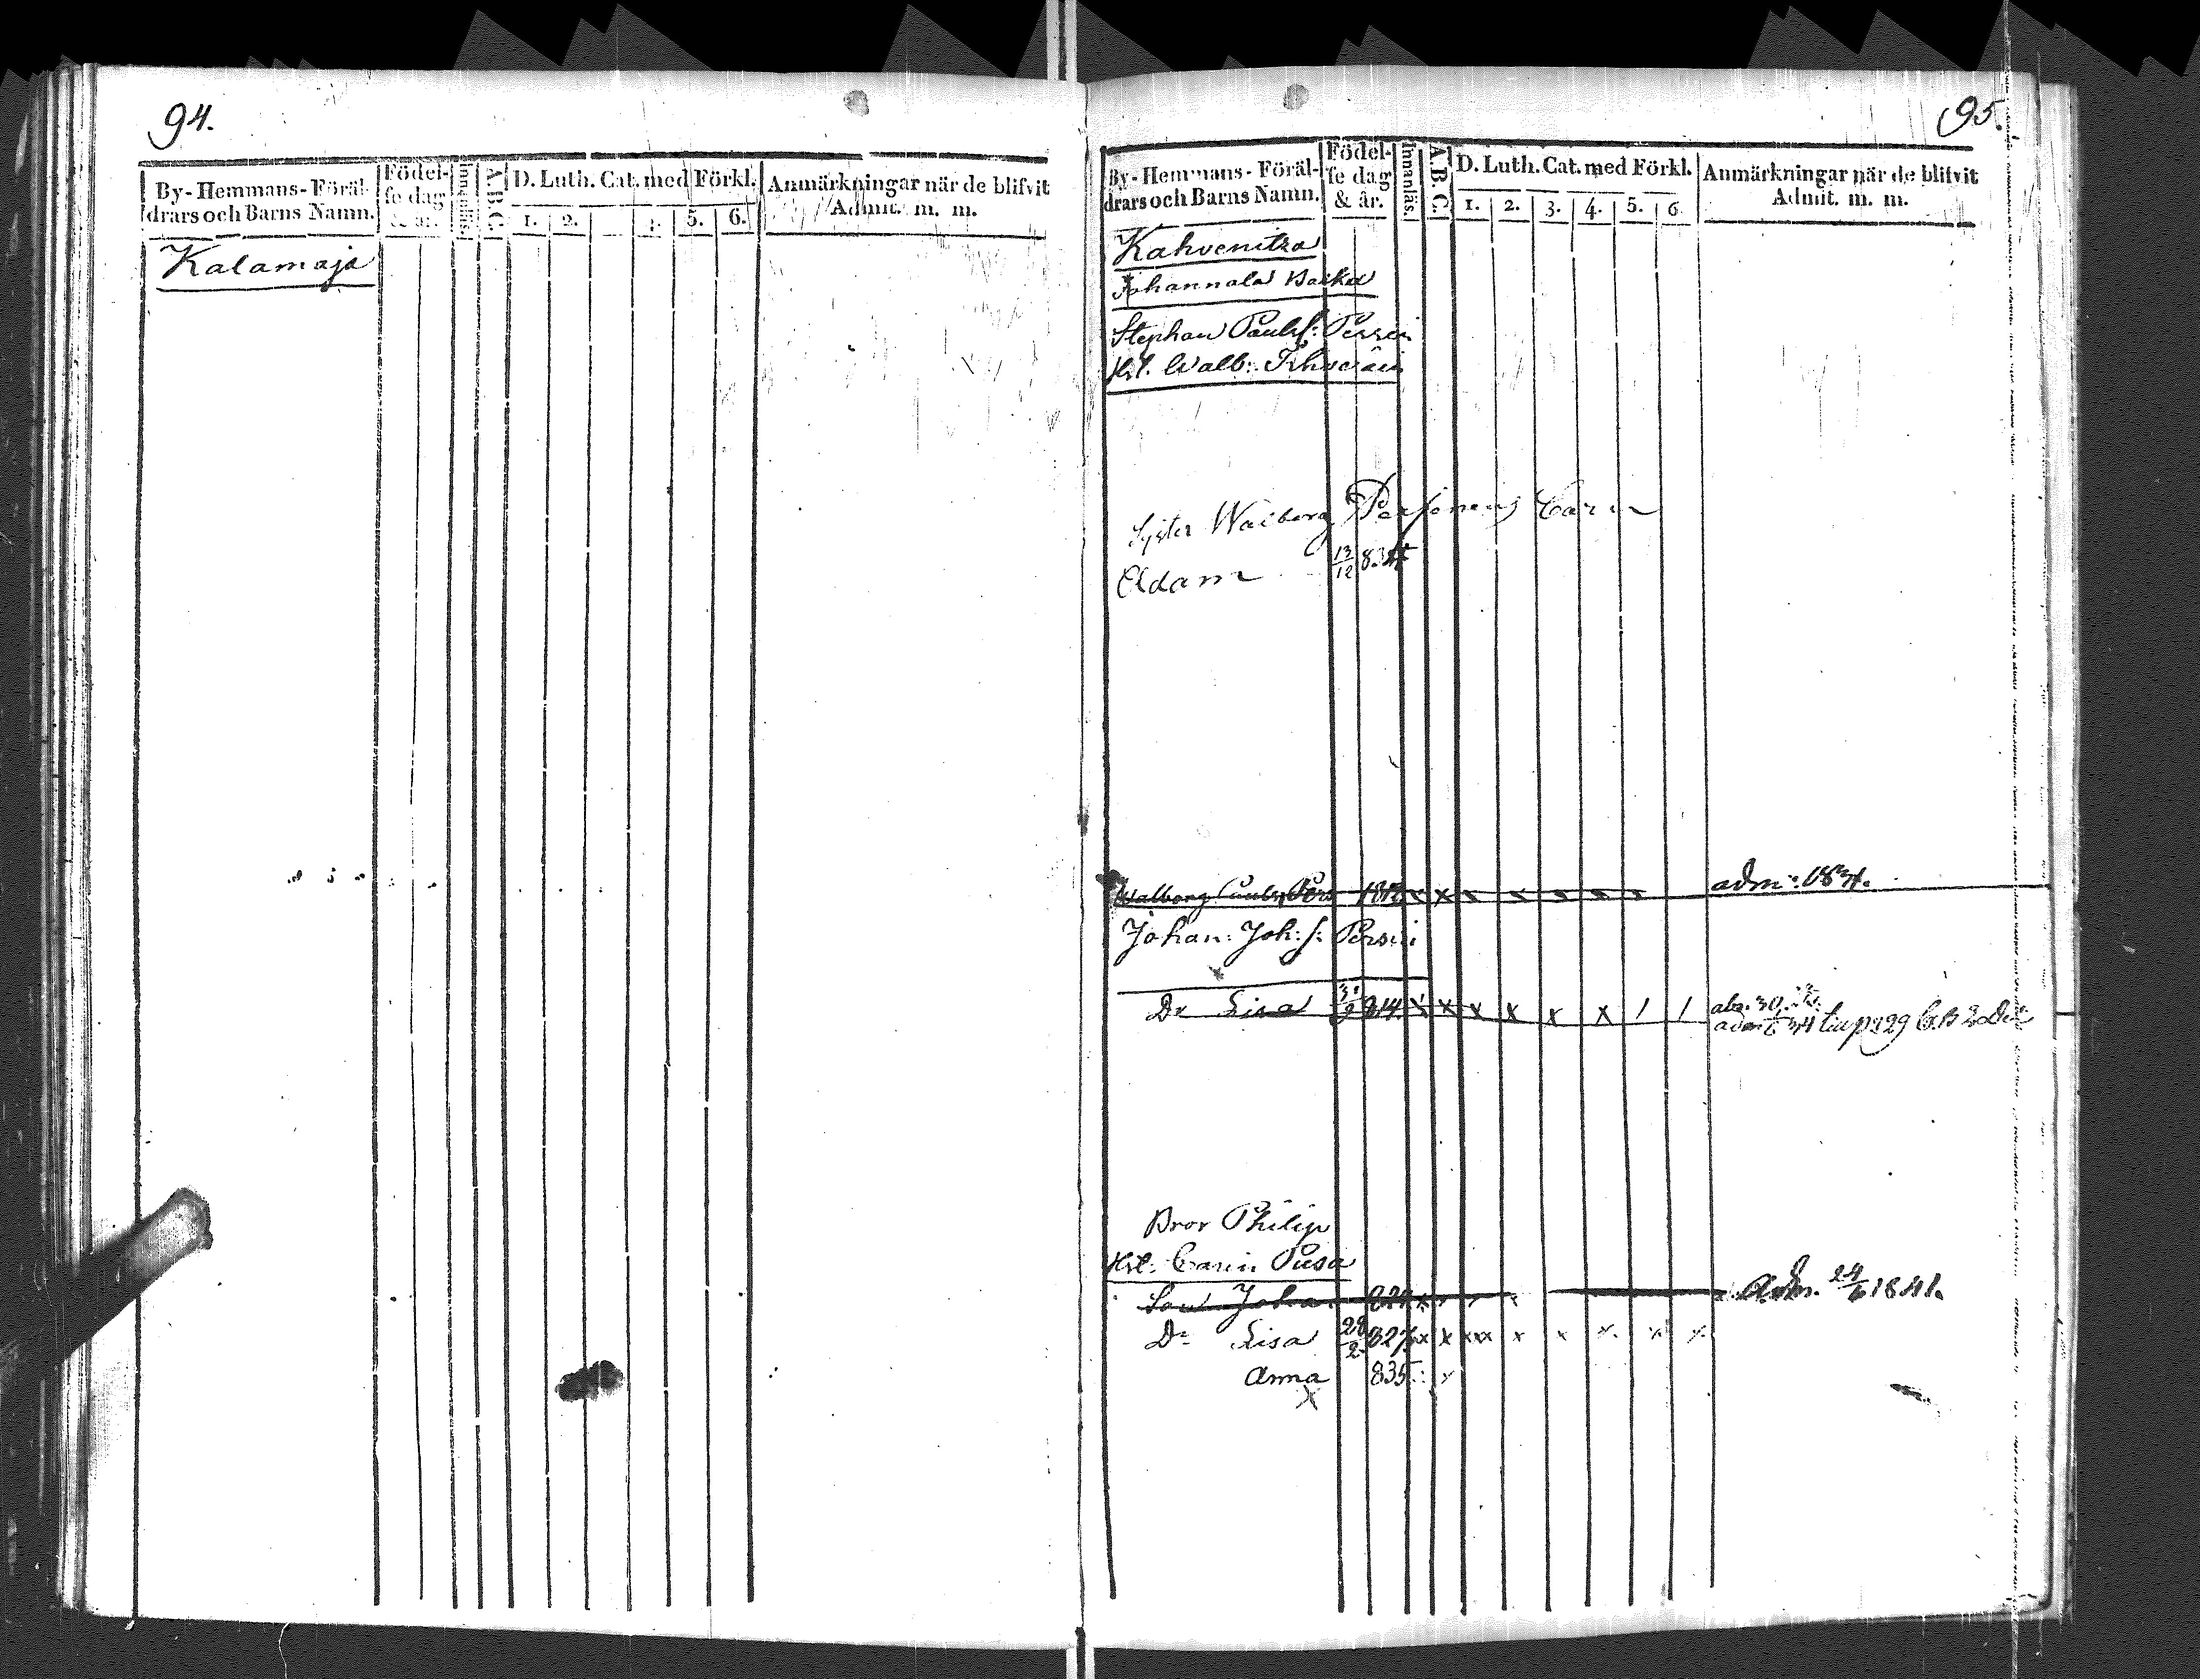 94.
By-Hemmans-Föräl-
drars och Barns Namn.
Födel-
se dag
& år.
Innanläs.
A.B.C.
D. Luth. Cat. med Förkl.
1. 2. 4. 5. 6.
Anmärkningar när de blifvit
Admit. m. m.
Kalamaja
95.
By-Hemmans-Föräl-
drars och Barns Namn.
Födel-
se dag
& år.
Innanläs.
A.B.C.
D. Luth. Cat. med Förkl.
1. 2. 3. 4. 5. 6.
Anmärkningar när de blifvit
Admit. m. m.
Kahvenitza
Johannala Backa
Stephan Paulss: Persoi
Hst. Walb:
Syster Walborg Carin
Adam 13/12 834
Walborg 181 x x x x x x x adm: 1834.
Johan: Joh: s: Persoi
Dr Lisa 814. x x x x x x 1 1
Bror Philip
Hst: Carin Pusa
Son Johan 824 x Adm. 24/6 1841.
Dr Lisa 28/2 827 xx x xxx x x x x x
Anna 835 x
x